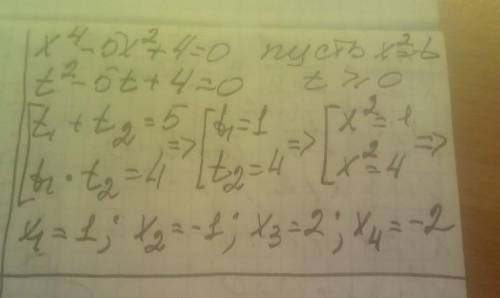 x⁴-5x²+4=0 пусть x²=t
t²-5t+4=0 t⩾0
[t₁+t₂=5 => [t₁=1 => [x²=1 =>
t₁·t₂=4 t₂=4 x²=4
x₁=1; x₂=-1; x₃=2; x₄=-2